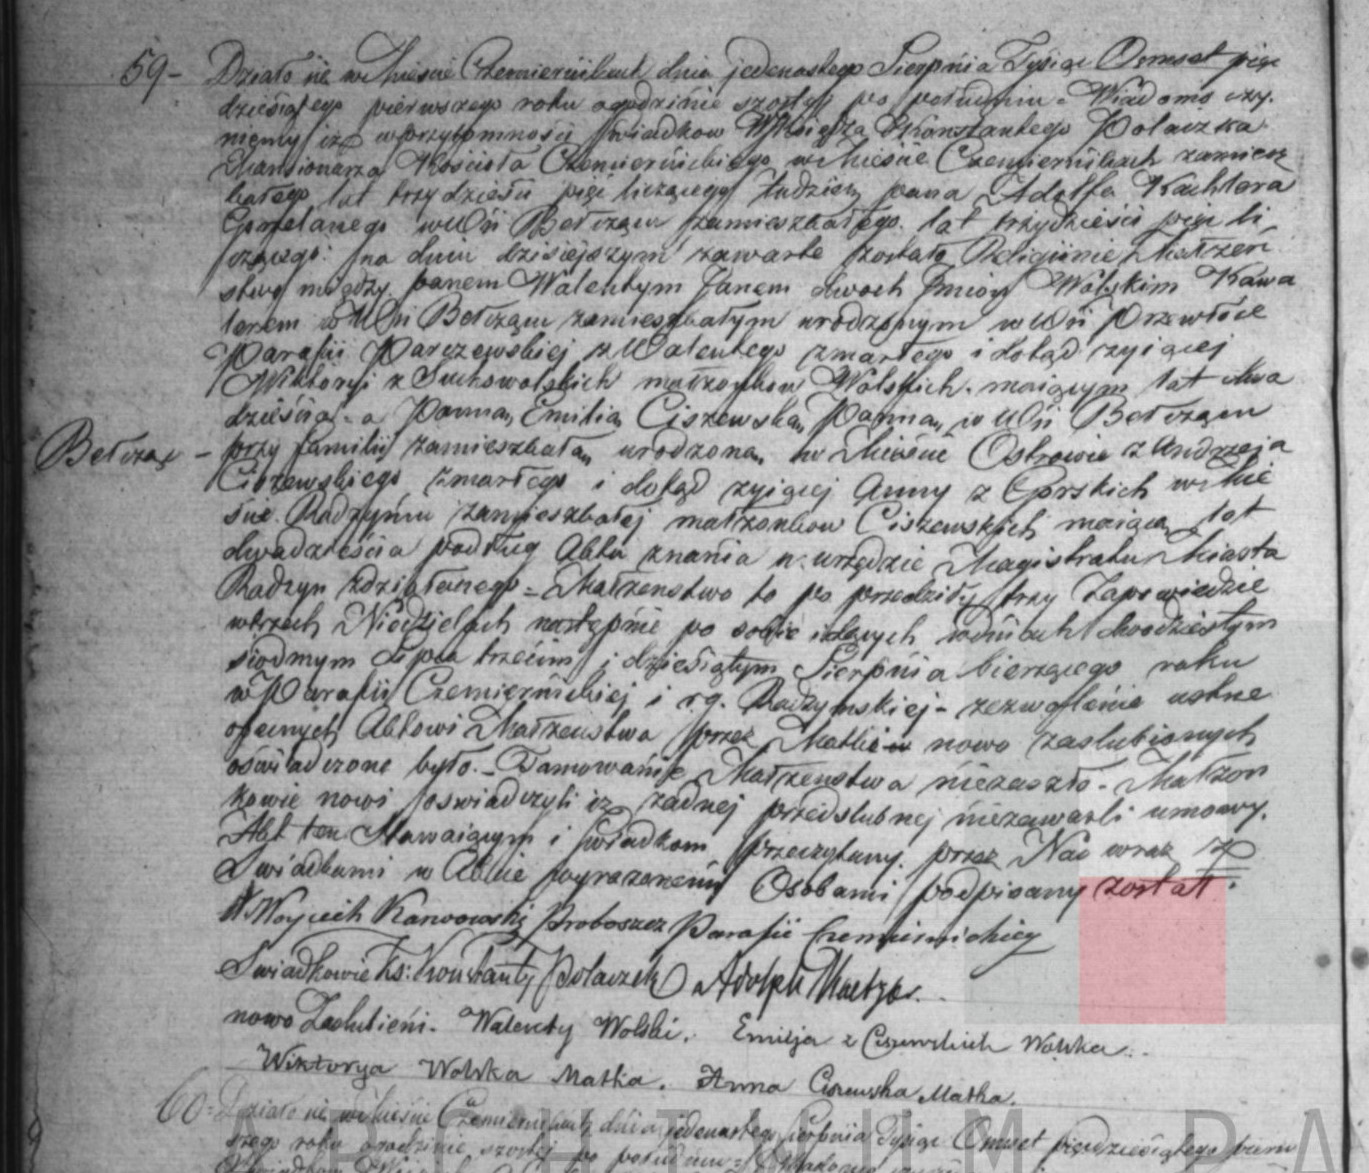 59- Działo się w Mieście Czemiernikach dnia jedenastego Sierpnia Tysiąc Osmset pięć
dziesiątego pierwszego roku o godzinie szóstej po południu - Wiadomo czy-
niemy iż w przytomności Świadków Księdza Konstantego Polaczka
Mansionarza Kościoła Czemiernickiego w Mieście Czemiernikach zamiesz
kałego lat trzydzieści pięć liczącego tudzież pana Adolfa
w Wsi Bełcząc zamieszkałego lat trzydzieści pięć li
czącego: na dniu dzisiejszym zawarte zostało Religijnie Małżeń
stwo między panem Walentym Janem dwoch Imion Wolskim Kawa
lerem w Wsi Bełcząc zamieszkałym urodzonym w Wsi Przewłoce
Parafii Parczewskiej z Walentego zmarłego i dotąd żyiącej
Wiktoryi z Suchowolskich małżonków Wolskich maiącym lat dwa
dzieścia - a Panną Emilią Ciszewską Panną w Wsi Bełcząc
Bełcząc - przy familij zamieszkałą urodzoną w Mieście Ostrowie z Andrzeja
Ciszewskiego zmarłego i dotąd żyiącej Anny z Gorskich w Mie
ście Radzyniu zamieszkałej małżonków Ciszewskich maiącą lat
dwadzieścia podług Aktu znania w urzędzie Magistratu Miasta
Radzyn zdziałanego - Małżeństwo to po przedziły trzy Zapowiedzie
w trzech Niedzielach następnie po sobie idących w dniach dwudziestym
siodmym Lipca trzecim i dziesiątym Sierpnia bieżącego roku
w Parafii Czemiernickiej i Radzynskiej - zezwolenie ustne
obecnych Aktowi Małżeństwa przez Matki nowo zaślubionych
oświadczone było. - Tamowanie Małżeństwa niezaszło - Małżon
kowie nowi oświadczyli iż żadnej przedślubnej niezawarli umowy.
Akt ten Stawaiącym i Świadkom przeczytany przez Nas wraz z
Swiadkami w Akcie wyrazonemi Osobami podpisany został.
X Woyciech Karwowski Proboszcz Parafii Czemiernickiey
Swiadkowie Ks: Konstanty Polaczek Adolph
nowo Zaslubieni - Walenty Wolski. Emilja z Ciszewskich Wolska.
Wiktorya Wolska Matka. Anna Ciszewska Matka.
60 - Działo się w Mieście Czemiernikach dnia jedenastego Sierpnia Tysiąc Osmset pięćdziesiątego pierw
szego roku o godzinie szóstej po południu - Wiadomo